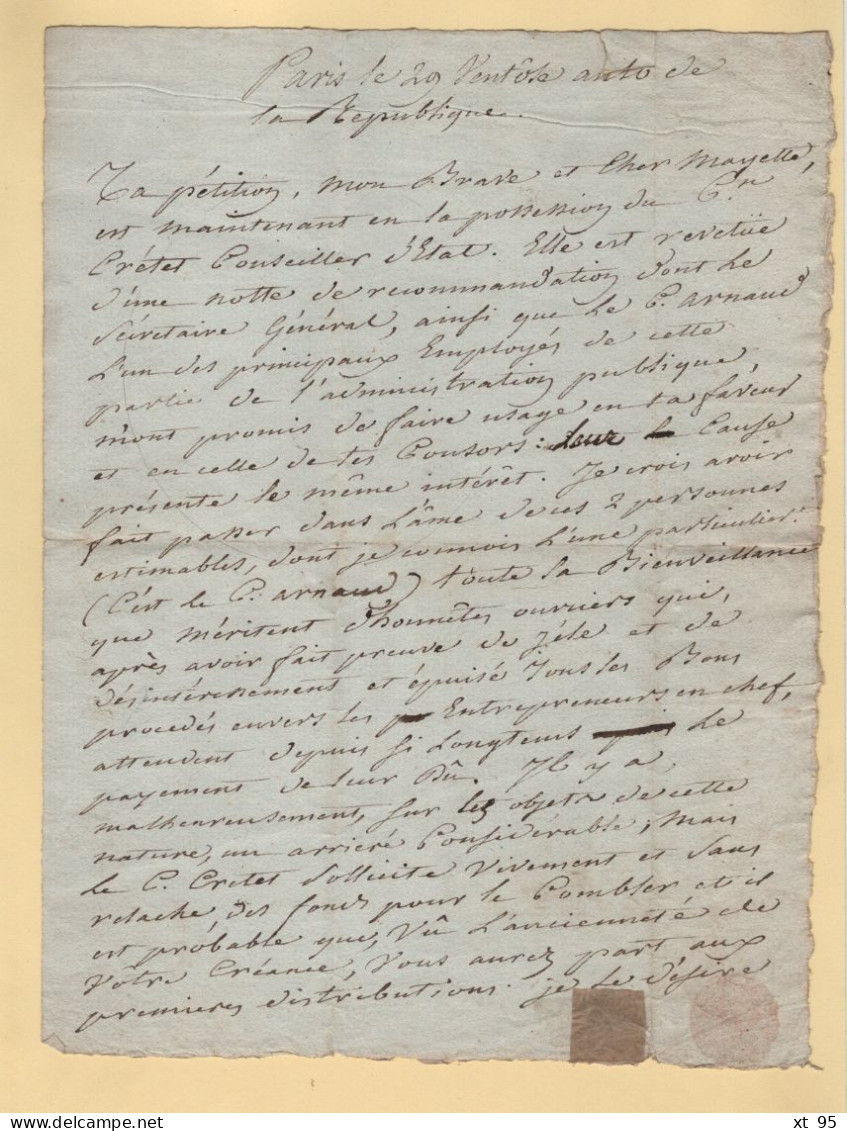 Paris le 29 Ventôse an 10 de
la Republique.
Ta pétition, mon Brave et Cher Mayette,
est maintenant en la possession du C.en
Crétet Conseiller d'Etat. Elle est revetüe
d'une notte de recommandation dont le
Sécretaire Général, ainsi que le C. Arnaud
l'un des principaux Employés de cette
partie de l'administration publique,
m'ont promis de faire usage en ta faveur
et en celle de tes Consors: leur Cause
présente le même intérêt. Je crois avoir
fait passer dans l'âme de ces 2 personnes
estimables, dont je connois l'une particulier.t
(C'est le C. Arnaud) toute la Bienveillance
que méritent d'honnêtes ouvriers qui,
après avoir fait preuve de Zéle et de
désintéressement et épuisé tous les Bons
procedés envers les Entrepreneurs en chef,
attendent depuis si longtems le
payement de leur Dû. Il y a,
malheureusement, sur les objets de cette
nature, un arriéré Considérable; mais
le C. Cretet Sollicite Vivement et Sans
relache, des fonds pour le Combler et il
est probable que, Vû l'ancienneté de
Vôtre Créance, Vous aurez part aux
premieres distributions. je le désire
xt 95